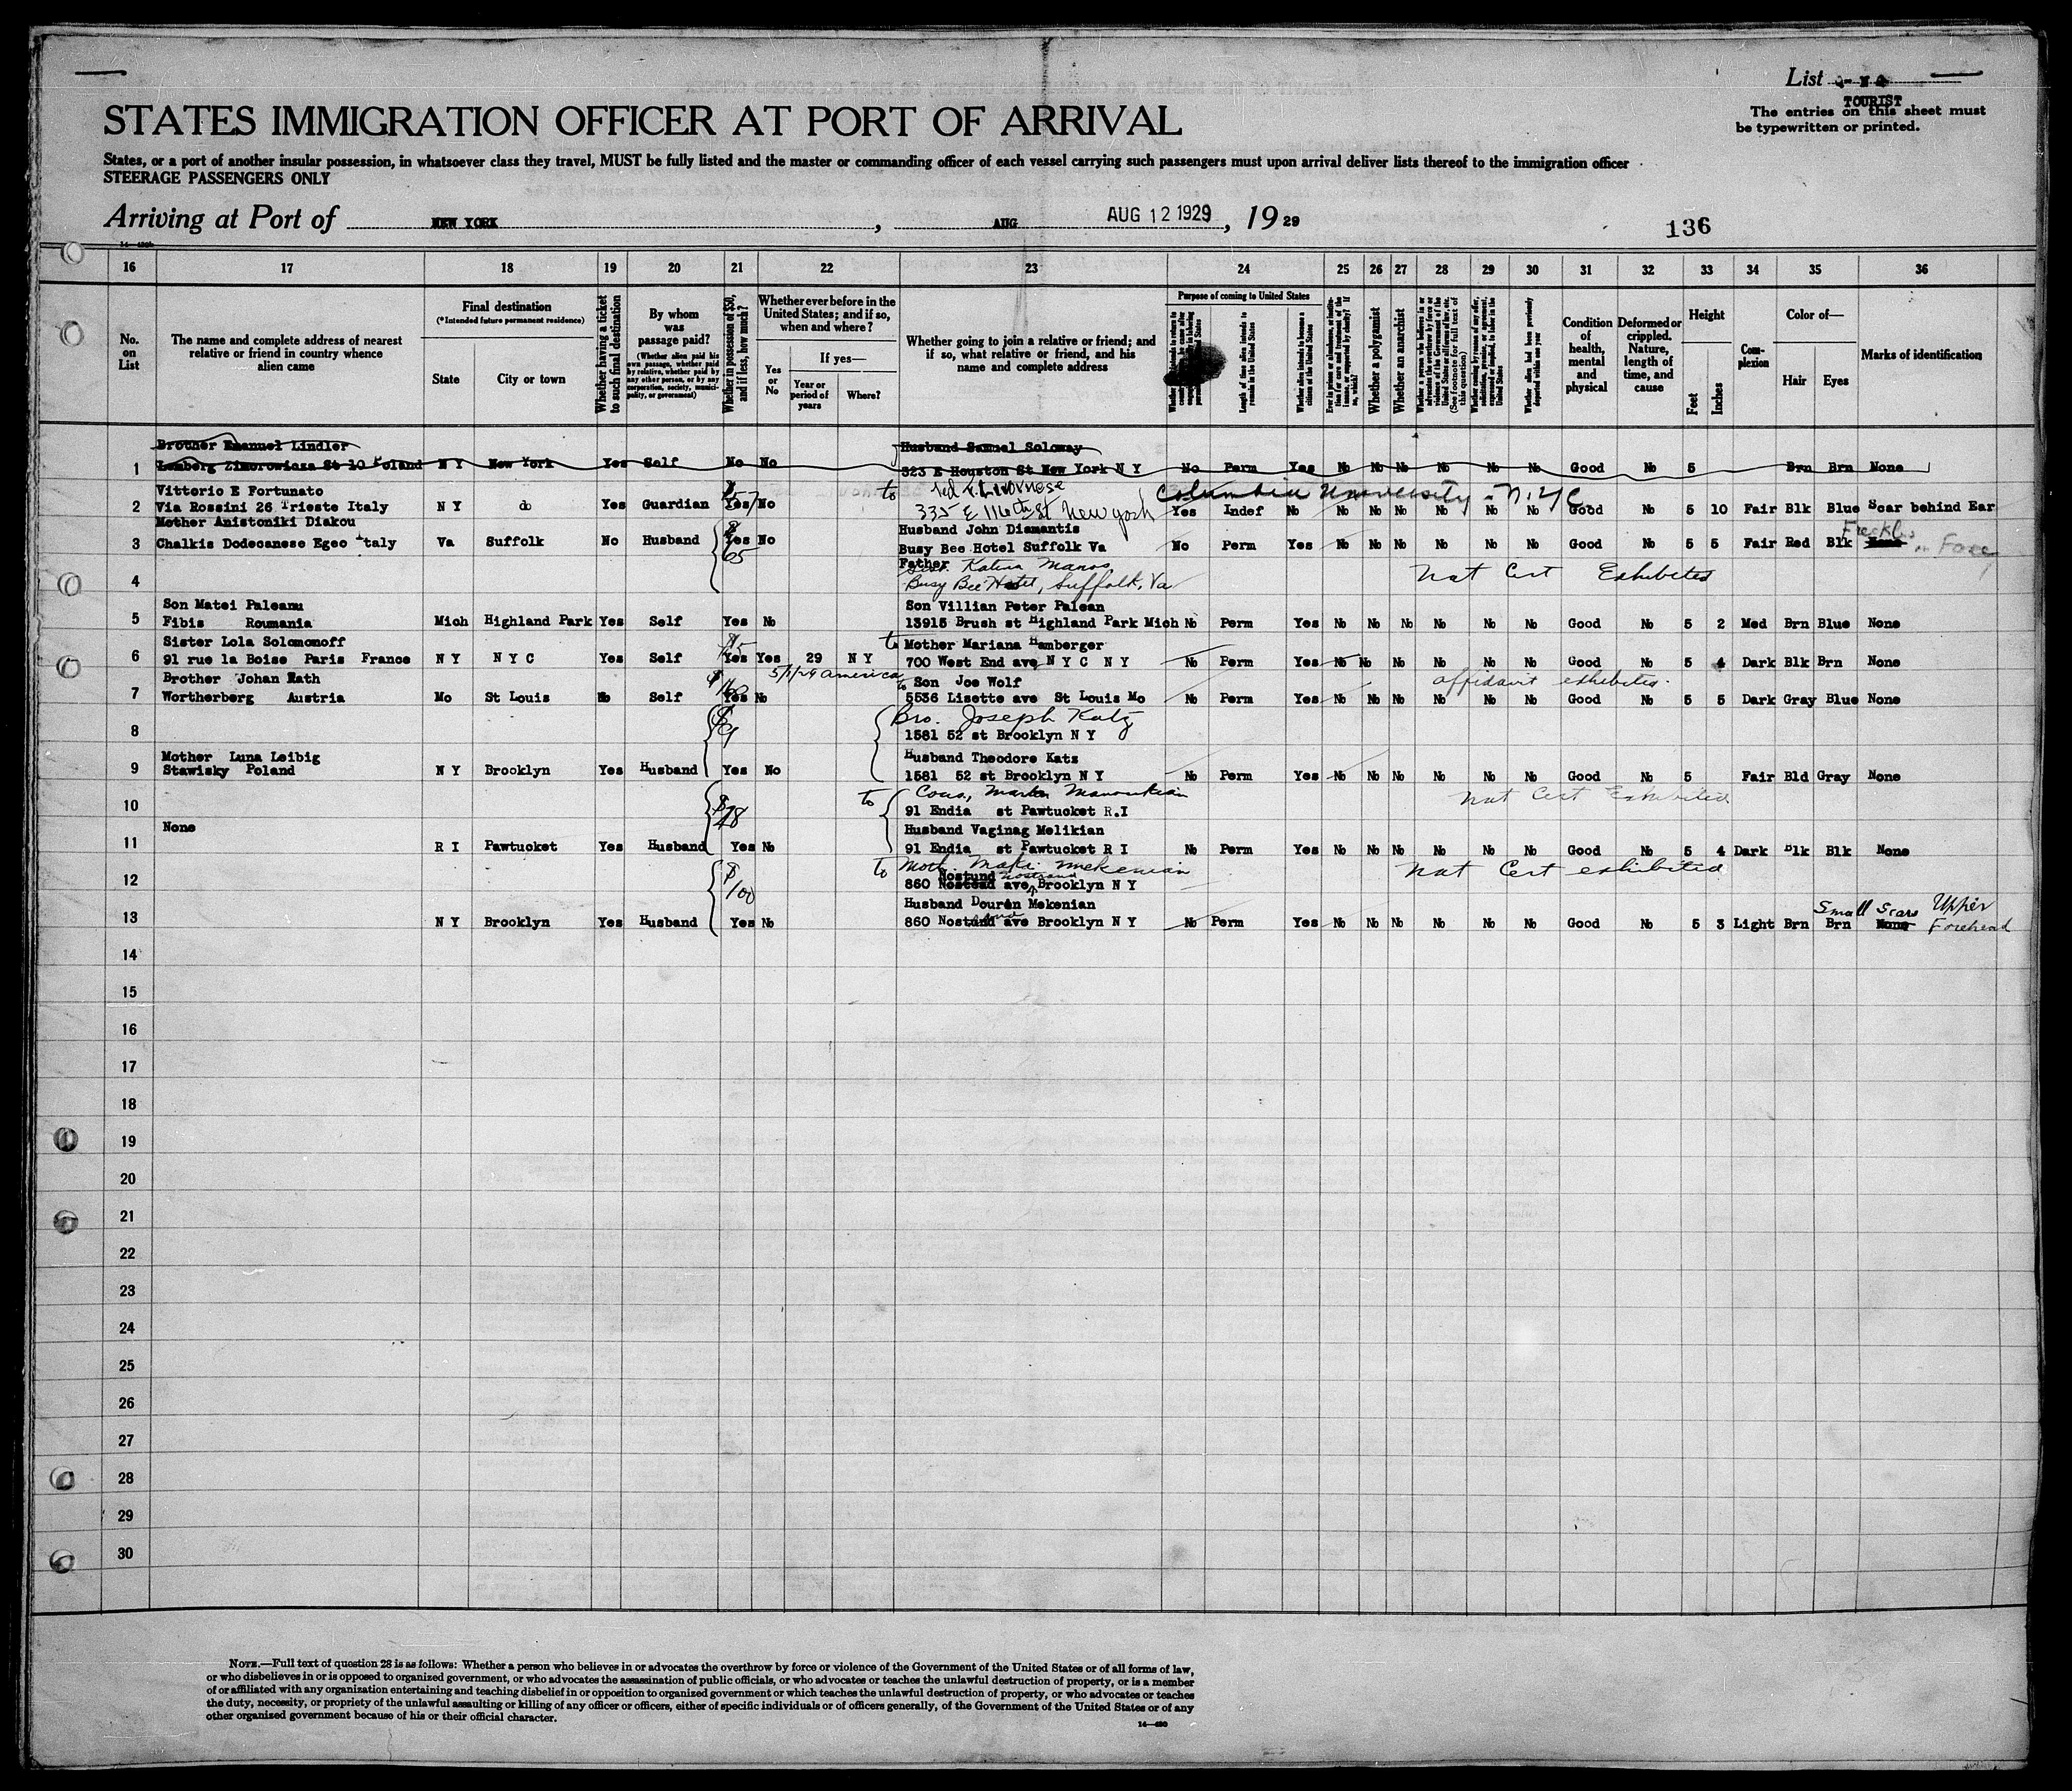 List
TOURIST
The entries on this sheet must
be typewritten or printed.
STATES IMMIGRATION OFFICER AT PORT OF ARRIVAL
States, or a port of another insular possession, in whatsoever class they travel, MUST be fully listed and the master or commanding officer of each vessel carrying such passengers must upon arrival deliver lists thereof to the immigration officer
STEERAGE PASSENGERS ONLY
Arriving at Port of NEW YORK, AUG AUG 12 1929, 19 29
136
16 17 18 19 20 21 22 23 24 25 26 27 28 29 30 31 32 33 34 35 36
No. on List
The name and complete address of nearest relative or friend in country whence alien came
Final destination
(*Intended future permanent residence)
State City or town
Whether having a ticket to such final destination
By whom was passage paid?
(Whether alien paid his own passage, whether paid by relative, whether paid by any other person, or by any corporation, society, municipality, or government)
Whether in possession of $50, and if less, how much?
Whether ever before in the United States; and if so, when and where?
Yes or No
If yes—
Year or period of years
Where?
Whether going to join a relative or friend; and if so, what relative or friend, and his name and complete address
Purpose of coming to United States
Length of time alien intends to remain in the United States
Whether alien intends to become a citizen of the United States
Whether a polygamist
Whether an anarchist
Whether alien had been previously deported within one year
Condition of health, mental and physical
Deformed or crippled. Nature, length of time, and cause
Height
Feet Inches
Complexion
Color of—
Hair Eyes
Marks of identification
Brother Emanuel Lindler Husband Samuel Soloway
1 Lemberg Zimorowicza St 10 Poland N Y New York Yes Self No No 323 E Houston St New York N Y No Perm Yes No No No No No No Good No 5 Brn Brn None
Vittorio E Fortunato Columbia University - N.Y.C
2 Via Rossini 26 Trieste Italy N Y do Yes Guardian Yes No to 335 E 116th St New York Yes Indef No No No No No No No Good No 5 10 Fair Blk Blue Scar behind Ear
Mother Anistoniki Diakou Husband John Diamantis
3 Chalkis Dodecanese Egeo Italy Va Suffolk No Husband $65 Yes No Busy Bee Hotel Suffolk Va No Perm Yes No No No No No No Good No 5 5 Fair Red Blk None
Father Katina Manos
4 Busy Bee Hotel, Suffolk, Va Nat Cert Exhibited
Son Matei Paleanu Son Villian Peter Palean
5 Fibis Roumania Mich Highland Park Yes Self Yes No 13915 Brush st Highland Park Mich No Perm Yes No No No No No No Good No 5 2 Med Brn Blue None
Sister Lola Solomonoff to Mother Mariana Hamberger
6 91 rue la Boise Paris France N Y N Y C Yes Self Yes Yes 29 N Y 700 West End ave N Y C N Y No Perm Yes No No No No No No Good No 5 4 Dark Blk Brn None
5/1/29 America
Brother Johan Rath to Son Joe Wolf affidavit exhibited.
7 Wortherberg Austria Mo St Louis No Self Yes No 5536 Lisette ave St Louis Mo No Perm Yes No No No No No No Good No 5 5 Dark Gray Blue None
Bro. Joseph Katz
8 1581 52 st Brooklyn N Y
Mother Luna Leibig Husband Theodore Katz
9 Stawisky Poland N Y Brooklyn Yes Husband Yes No 1581 52 st Brooklyn N Y No Perm Yes No No No No No No Good No 5 Fair Bld Gray None
to Cous, Manoukian Nat Cert Exhibited
10 91 Endia st Pawtucket R.I
None Husband Vaginag Melikian
11 R I Pawtucket Yes Husband Yes No 91 Endia st Pawtucket R I No Perm Yes No No No No No No Good No 5 4 Dark Blk Blk None
to Moth. Maki Mekenian Nat Cert exhibited
12 $100 860 Nostend Nostund Nostrand ave Brooklyn N Y
Husband Douren Mekenian Small Scars Upper Forehead
13 N Y Brooklyn Yes Husband Yes No 860 Nostund ave Brooklyn N Y No Perm Yes No No No No No No Good No 5 3 Light Brn Brn None
14
15
16
17
18
19
20
21
22
23
24
25
26
27
28
29
30
NOTE.—Full text of question 28 is as follows: Whether a person who believes in or advocates the overthrow by force or violence of the Government of the United States or of all forms of law,
or who disbelieves in or is opposed to organized government, or who advocates the assassination of public officials, or who advocates or teaches the unlawful destruction of property, or is a member
of or affiliated with any organization entertaining and teaching disbelief in or opposition to organized government or which teaches the unlawful destruction of property, or who advocates or teaches
the duty, necessity, or propriety of the unlawful assaulting or killing of any officer or officers, either of specific individuals or of officers generally, of the Government of the United States or of any
other organized government because of his or their official character.
14—480